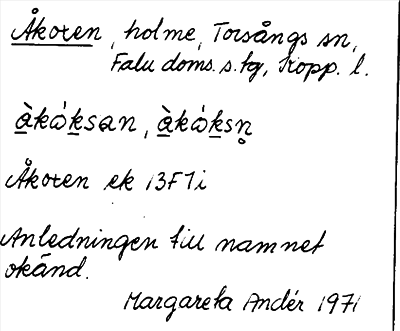 Åkoxen, holme, Torsångs sn,
Falu doms. s. tg, Kopp. l.
àkὼksan, àkὼksn̥
Åkoxen ek 13F7i
Anledningen till namnet
okänd.
Margareta Andér 1971